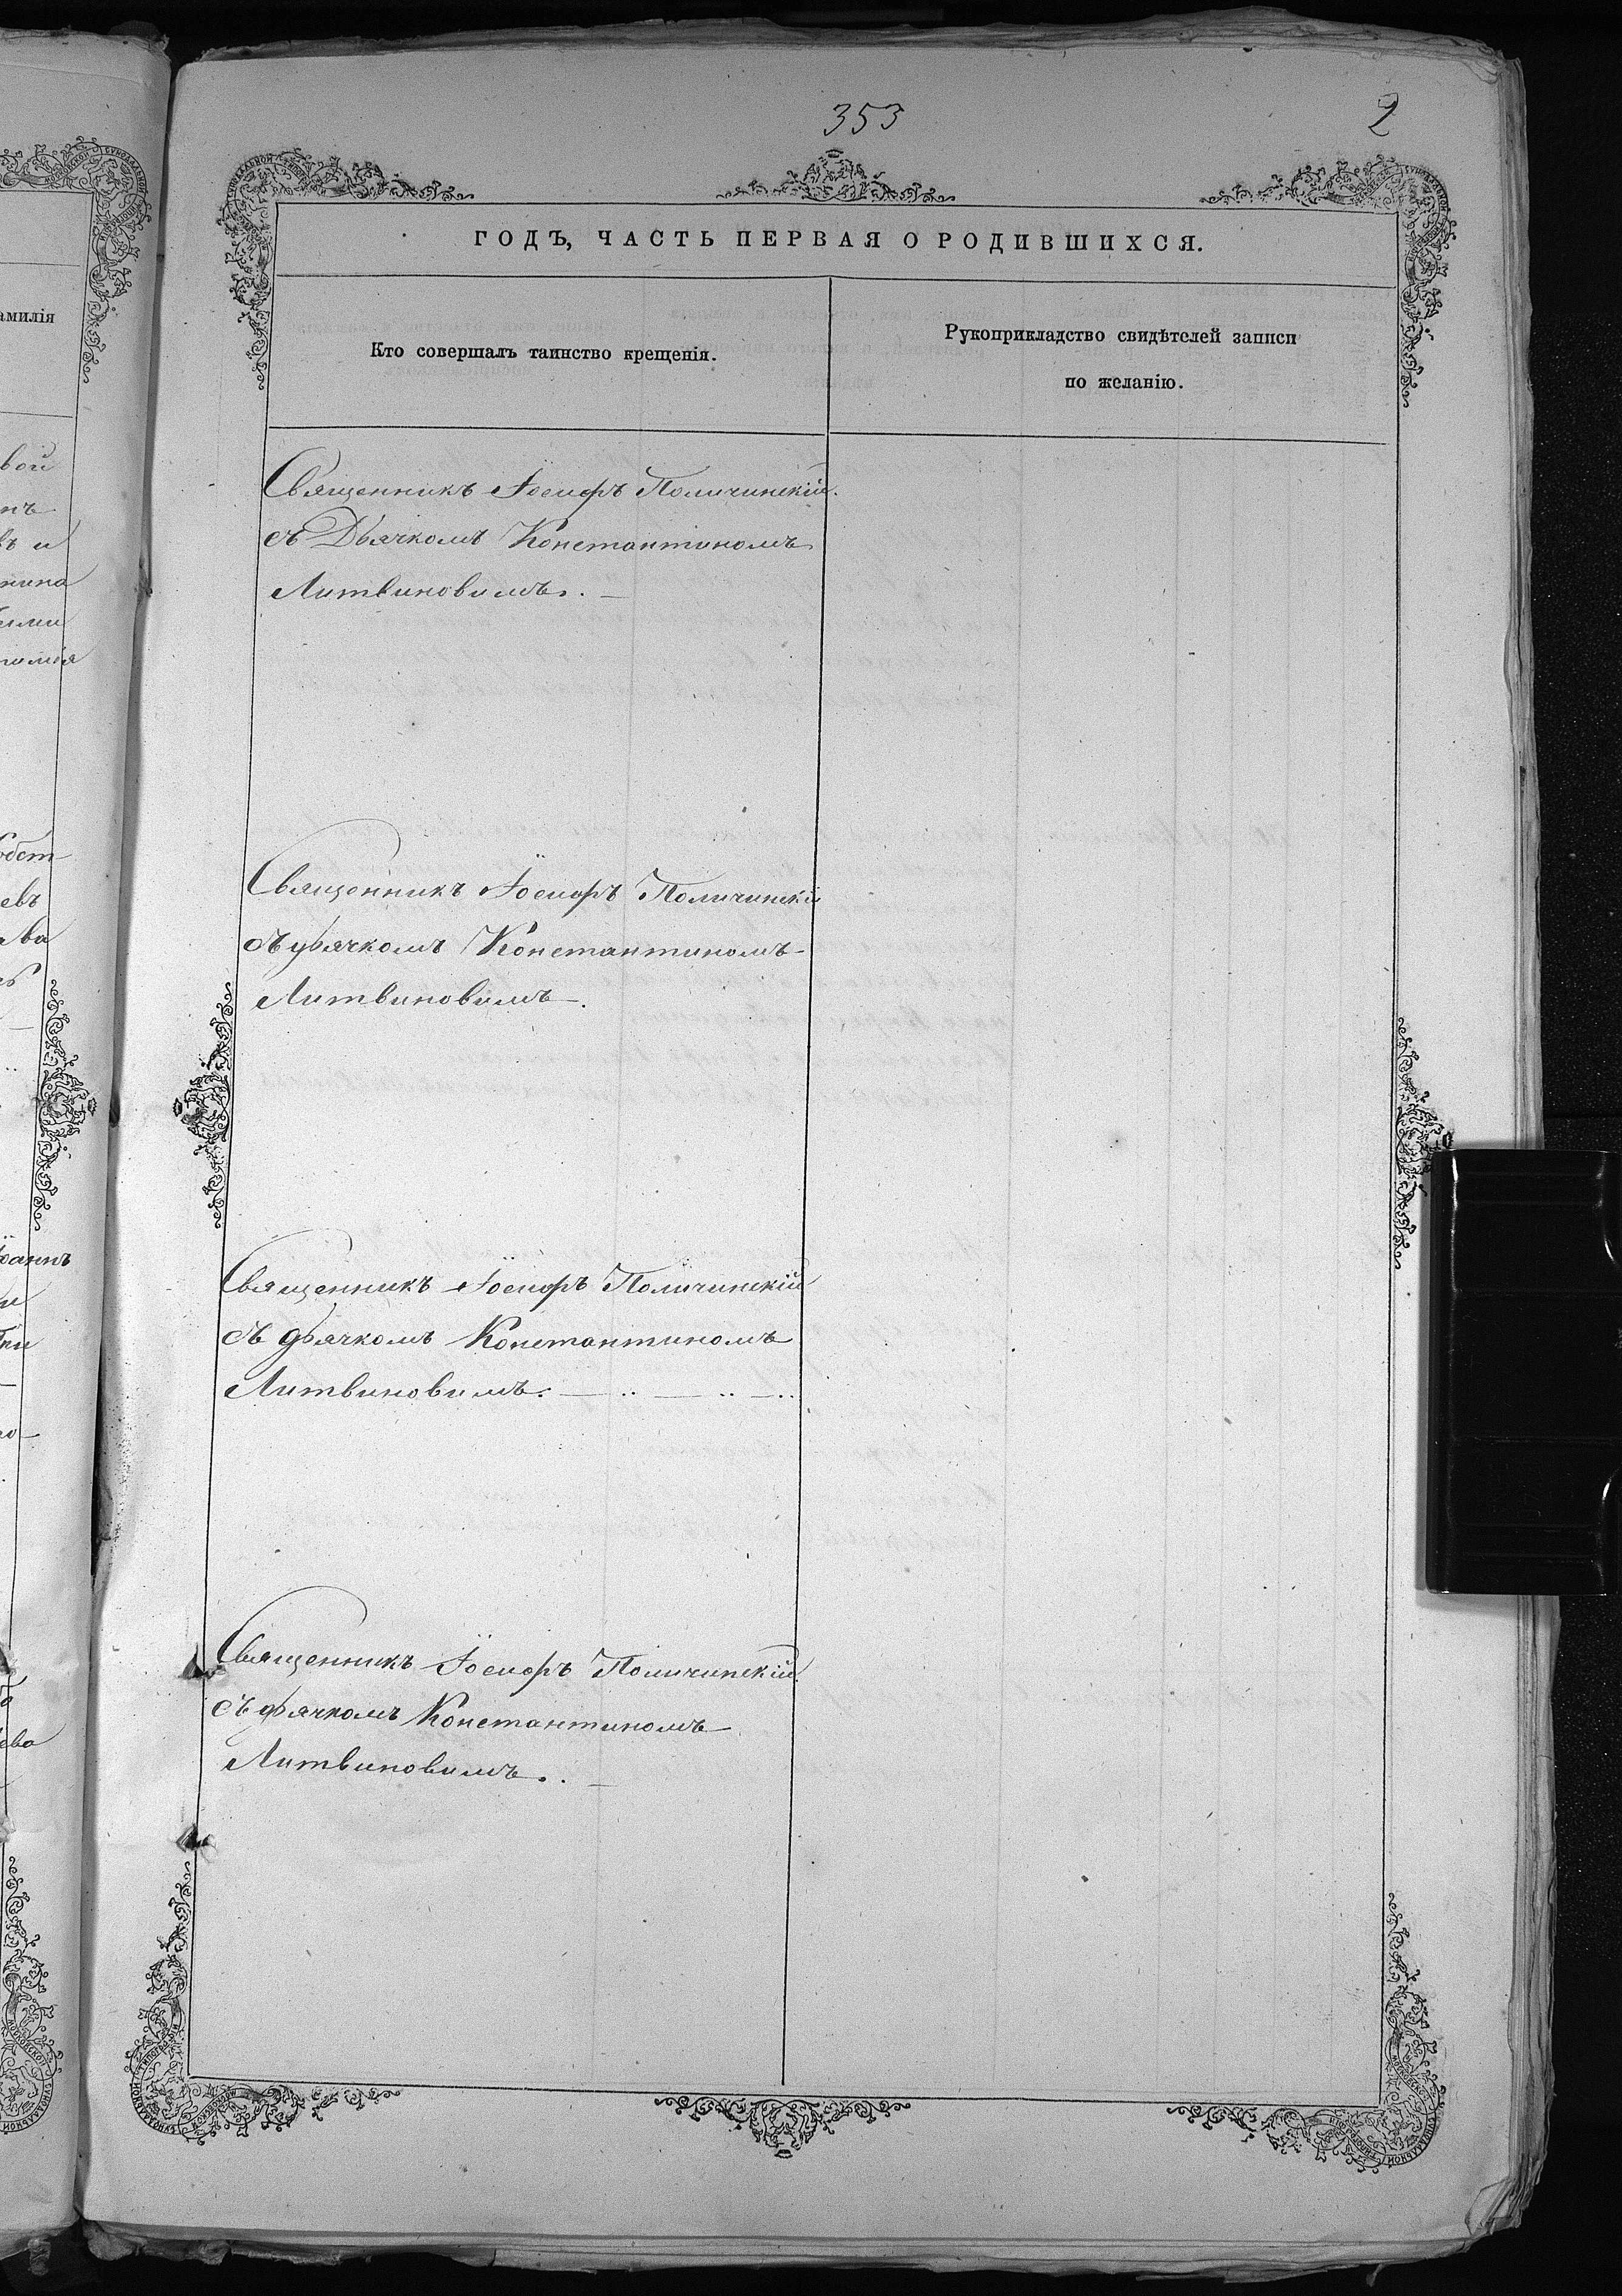 353
2
ГОДЪ, ЧАСТЬ ПЕРВАЯ О РОДИВШИХСЯ.
Кто совершалъ таинство крещенія.
Рукоприкладство свидѣтелей записи
по желанію.
Священникъ Іосифъ Поличинскій.
съ Дьячкомъ Константиномъ
Литвиновимъ.
Священникъ Іосифъ Поличинскій
съ дьячкомъ Константиномъ
Литвиновимъ.
Священникъ Іосифъ Поличинскій
съ дьячкомъ Константиномъ
Литвиновимъ.
Священникъ Іосифъ Поличинскій
съ дьячкомъ Константиномъ
Литвиновимъ.